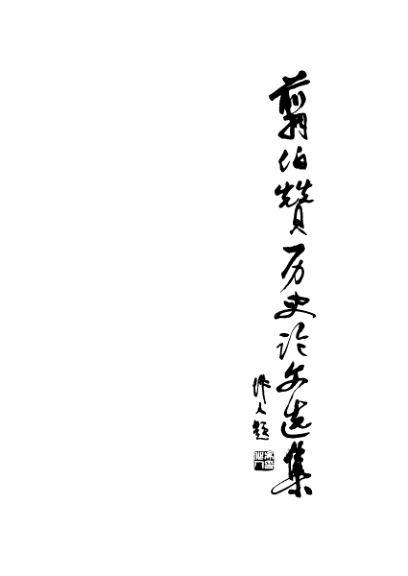 翦伯赞历史论文选集
作人题